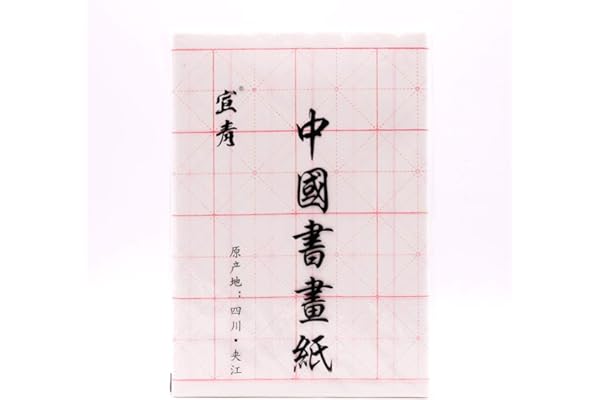 中國書畫紙
宜青®
原产地：四川·夹江